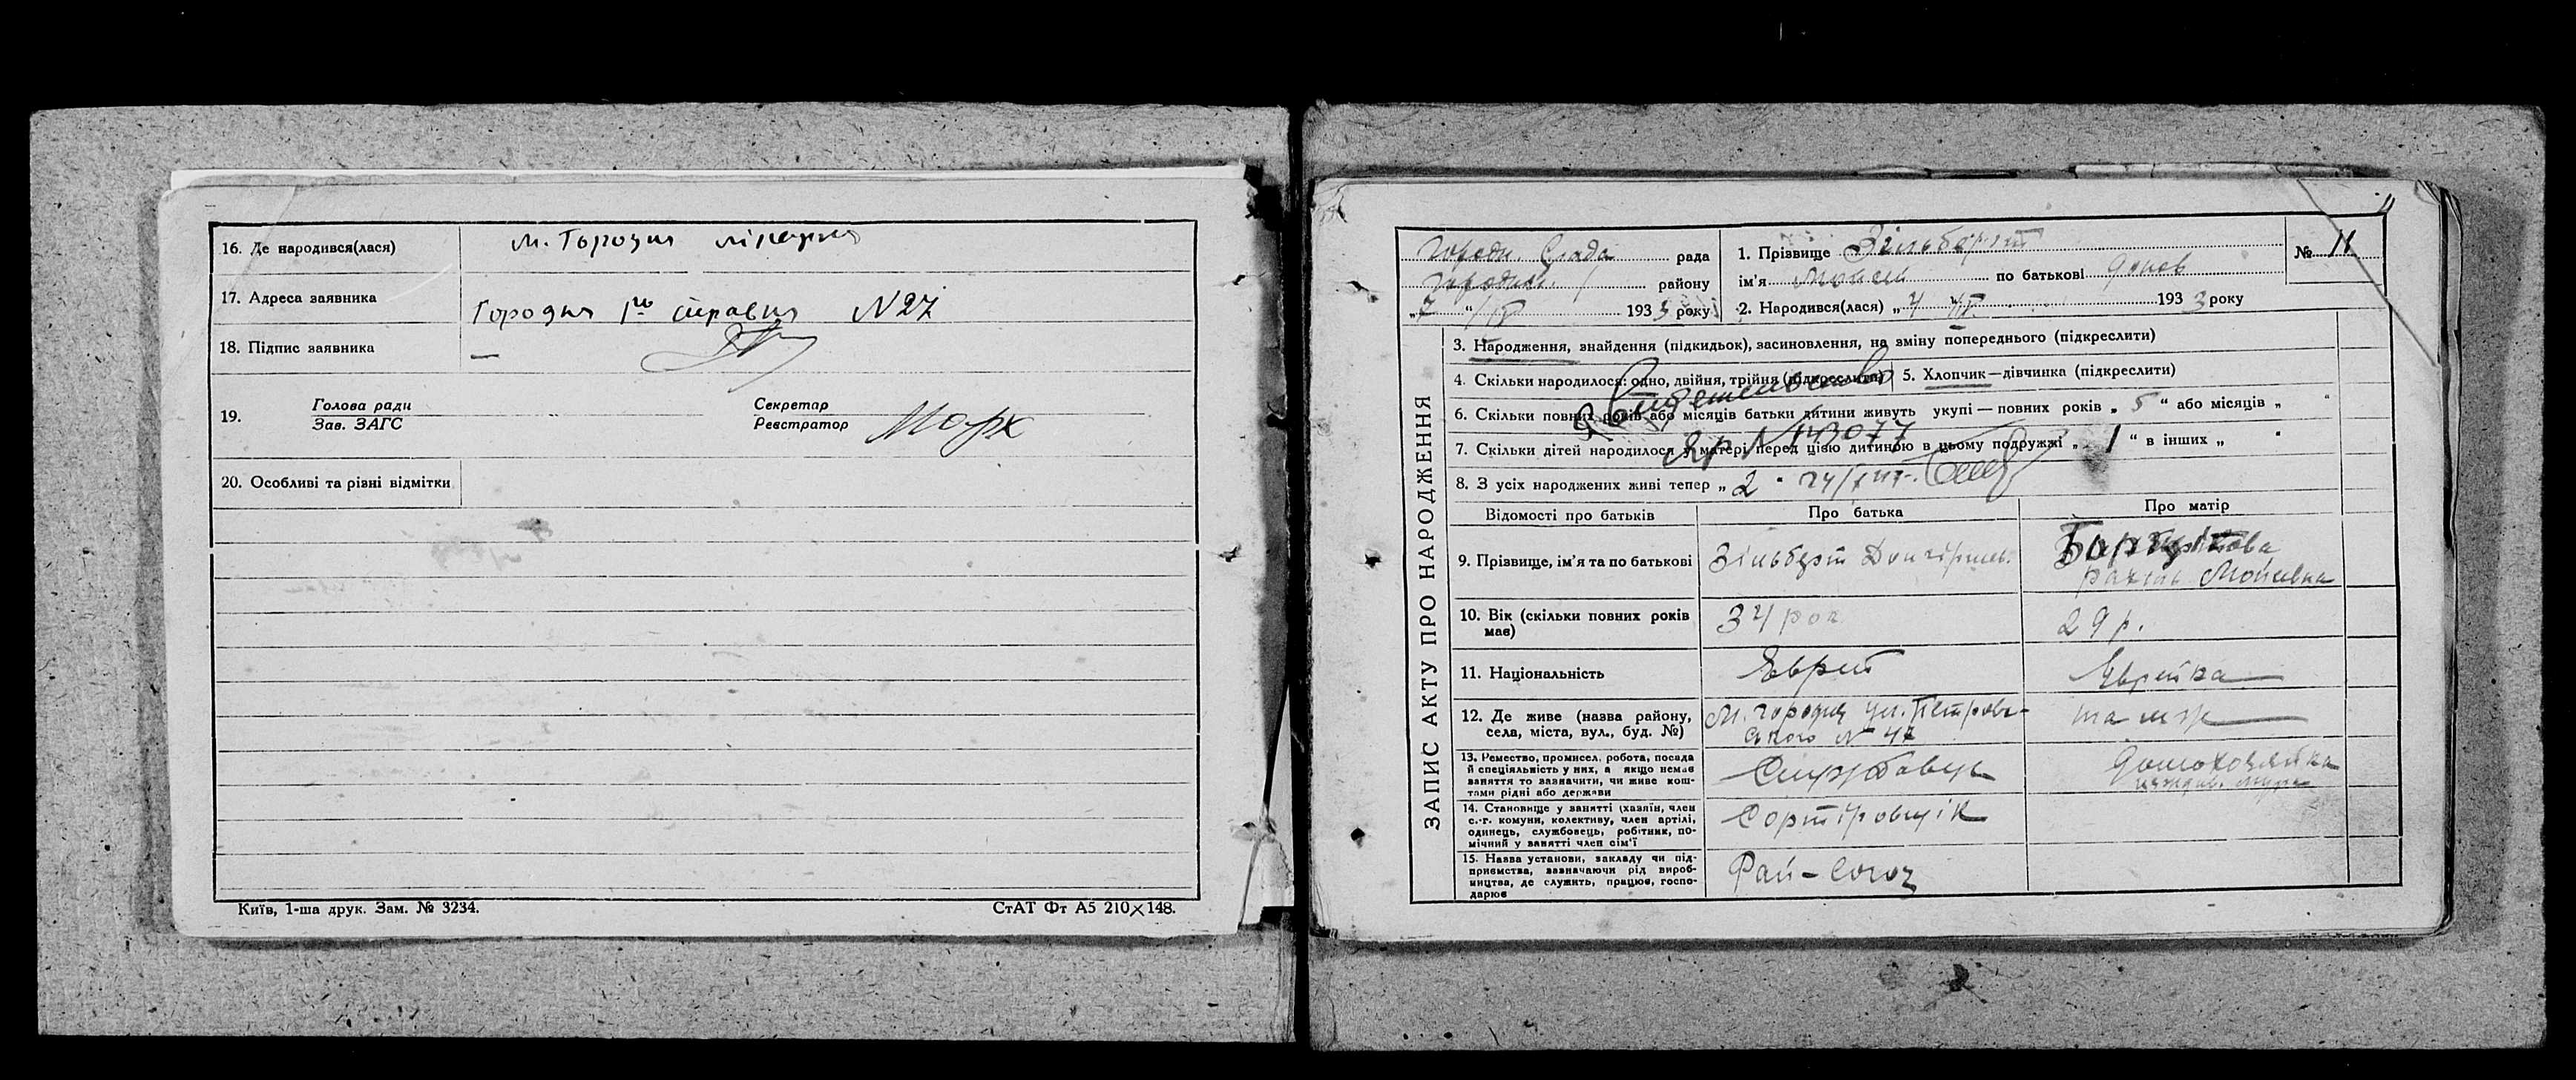 16. Де народився(лася) м. Городня лікарня
17. Адреса заявника Городня 1го травня N 27
18. Підпис заявника —
19. Голова ради
Зав. ЗАГС
Секретар
Реєстратор
20. Особливі та різні відмітки
Київ, 1-ша друк. Зам. № 3234.
СтАТ Фт А5 210×148.
11
ЗАПИС АКТУ ПРО НАРОДЖЕННЯ
Городн. рада
Городнян. району
„7 “ IV 1933 року
1. Прізвище Зільберт
№ 11
ім'я Мойсей по батькові Донов
2. Народився(лася) „4 IV 1933 року
3. Народження, знайдення (підкидьок), засиновлення, на зміну попереднього (підкреслити)
4. Скільки народилося: одно, двійня, трійня (підкреслити)
5. Хлопчик—дівчинка (підкреслити)
6. Скільки повних років або місяців батьки дитини живуть укупі — повних років „ 5 “ або місяців „ “
7. Скільки дітей народилося у матері перед цією дитиною в цьому подружжі „ 1 “ в інших „ “
ЯР N 143077
8. З усіх народжених живі тепер „ 2 “
Відомості про батьків
Про батька
Про матір
9. Прізвище, ім'я та по батькові
Зільберт Дон
Рахиль Мойсеевна
10. Вік (скільки повних років має)
34 рок
29 р.
11. Національність
Єврей
Єврейка
12. Де живе (назва району, села, міста, вул., буд. №)
М. Городня ул. Петровського N 47
там же
13. Ремество, промисел, робота, посада й спеціяльність у них, а якщо немає заняття то зазначити, чи живе коштами рідні або держави
Службовець
Домохозяйка
14. Становище у занятті (хазяїн, член с.-г. комуни, колективу, член артілі, одинець, службовець, робітник, помічний у занятті член сім'ї
Сортіровщік
15. Назва установи, закладу чи підприємства, зазначаючи рід виробництва, де служить, працює, господарює
Рай-Союз